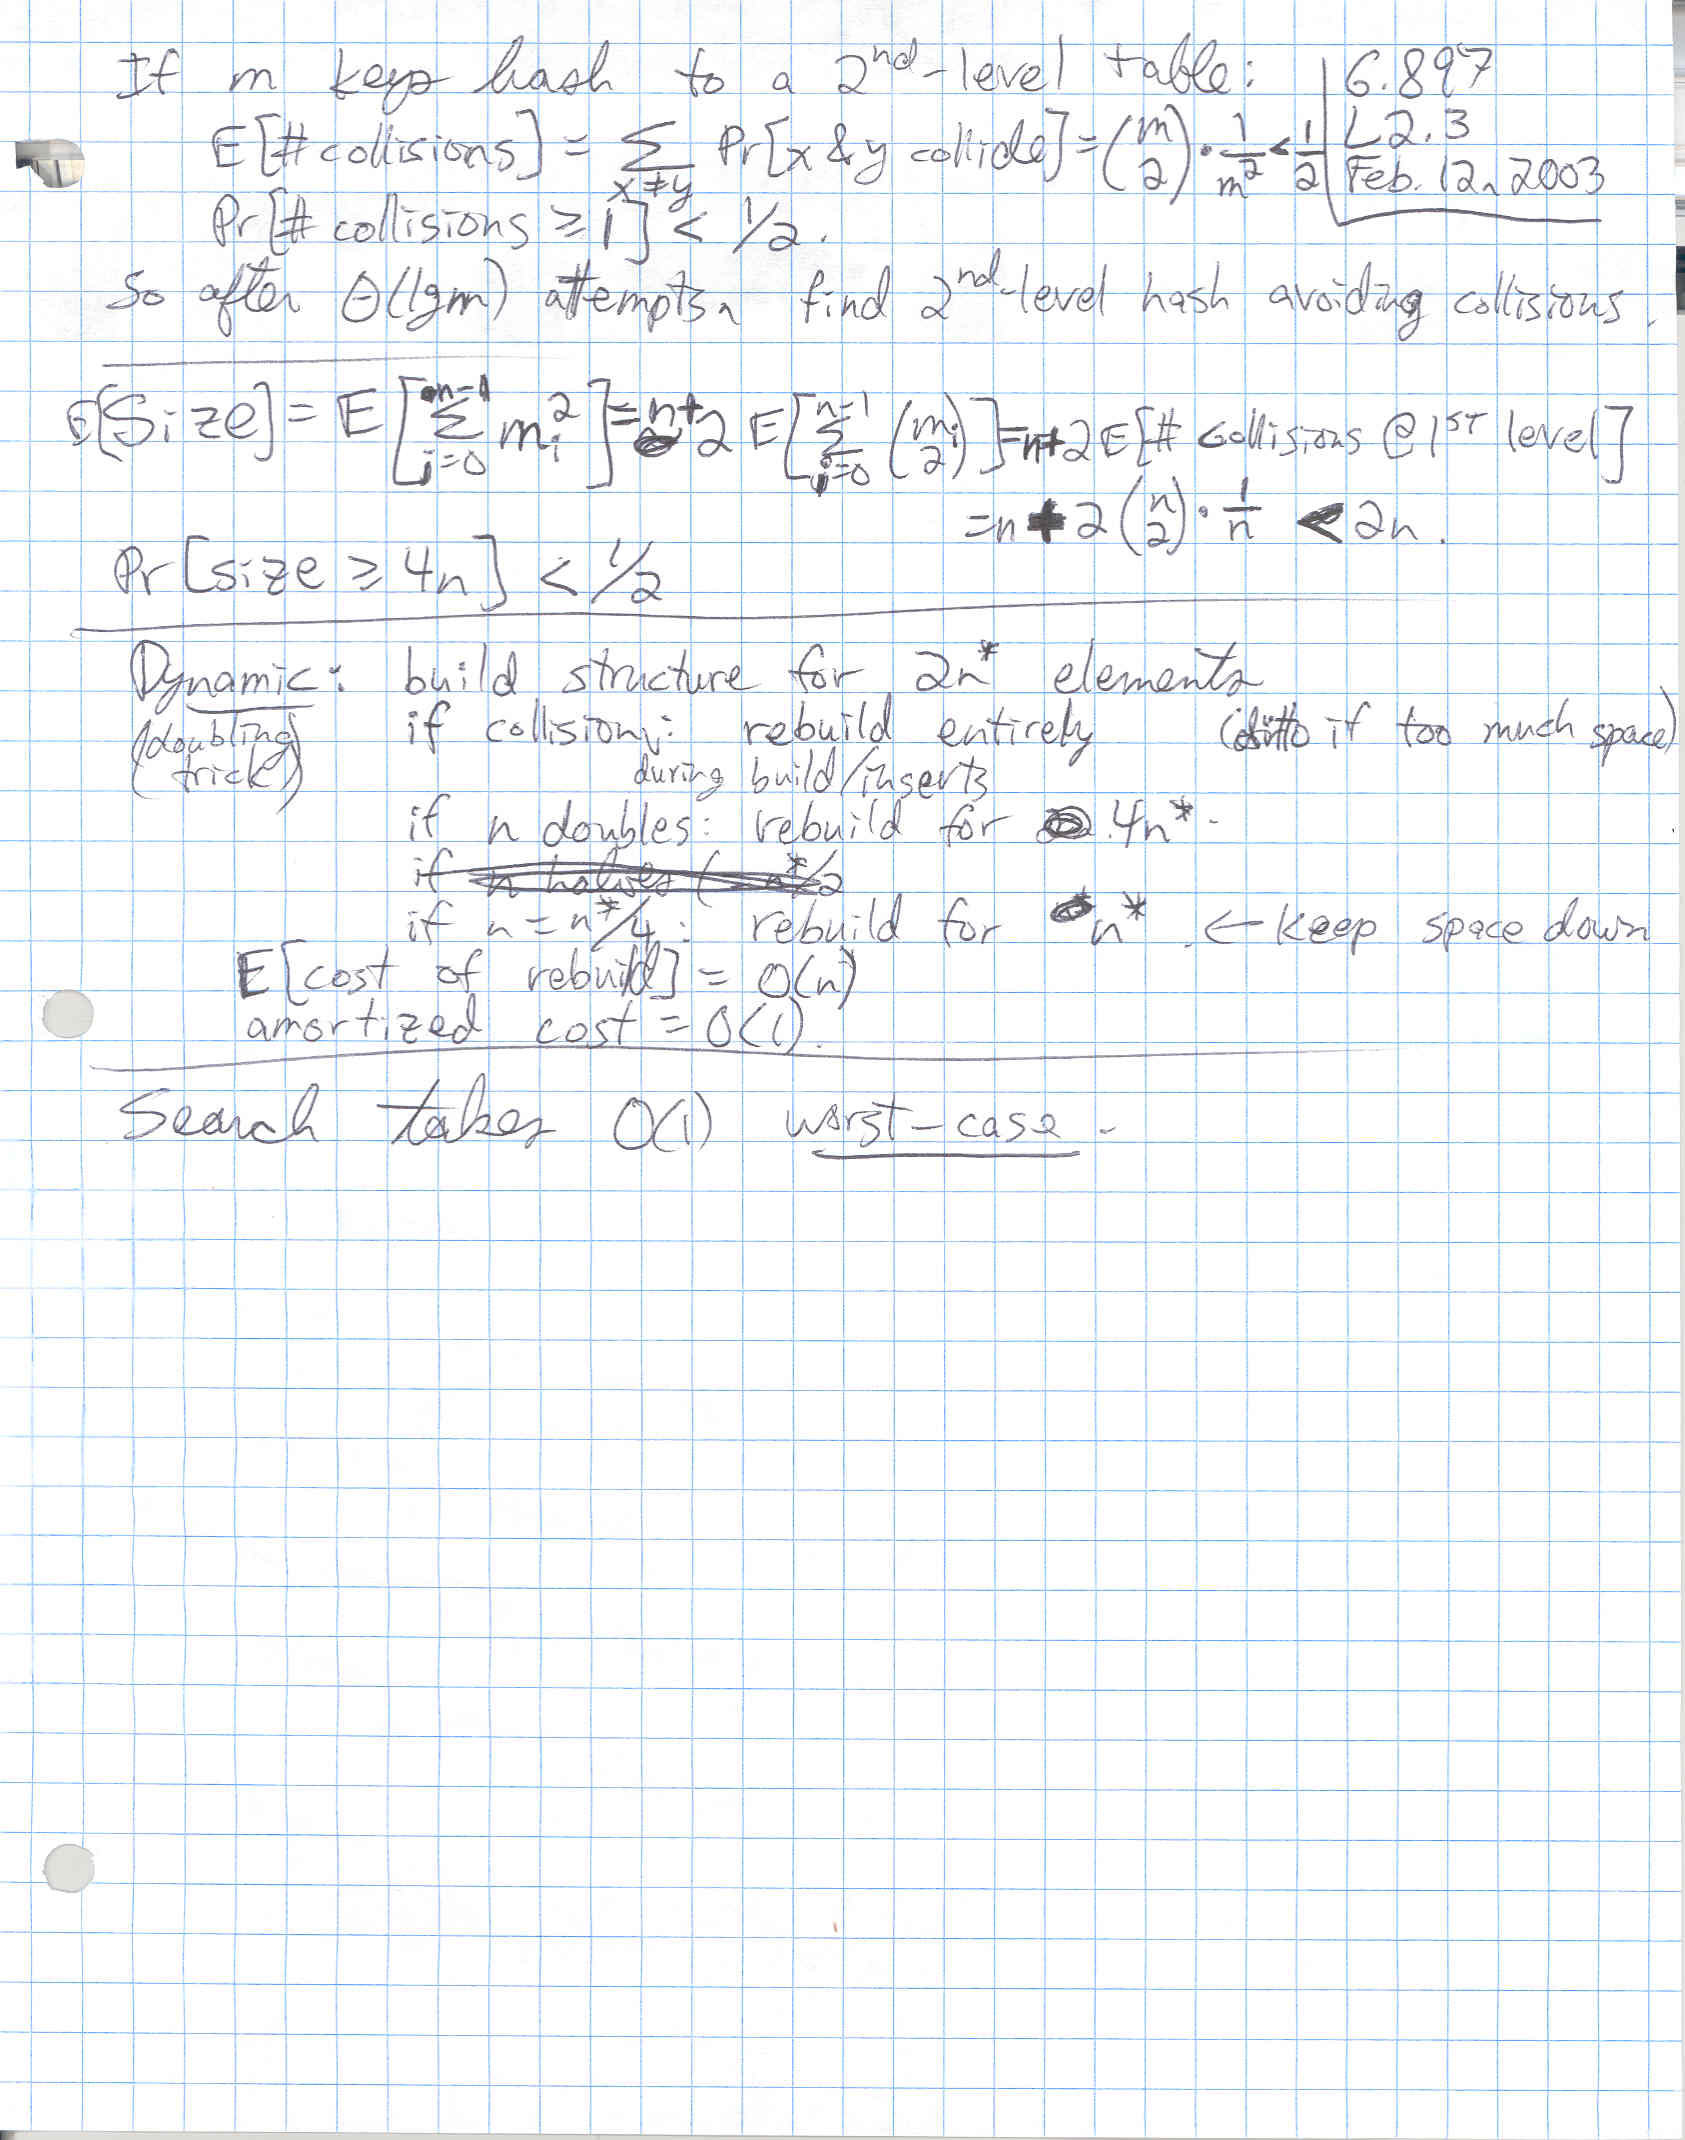 If m keys hash to a 2nd-level table:
6.897
L2.3
Feb. 12, 2003
E[# collisions] = Σ_{x≠y} Pr[x & y collide] = (m choose 2) · 1/m² < 1/2
Pr[# collisions ≥ 1] < 1/2.
So after Θ(lg m) attempts, find 2nd-level hash avoiding collisions.
E[Size] = E[Σ_{i=0}^{n-1} m_i²] = n + 2 E[Σ_{i=0}^{n-1} (m_i choose 2)] = n + 2 E[# collisions @ 1ST level]
= n + 2 (n choose 2) · 1/n < 2n.
Pr[size ≥ 4n] < 1/2
Dynamic: build structure for 2n* elements
(doubling trick)
if collision: rebuild entirely (ditto if too much space)
during build/inserts
if n doubles: rebuild for 4n*.
if n halves ( n*/2
if n = n*/4: rebuild for n* ← keep space down
E[cost of rebuild] = O(n)
amortized cost = O(1).
Search takes O(1) worst-case.